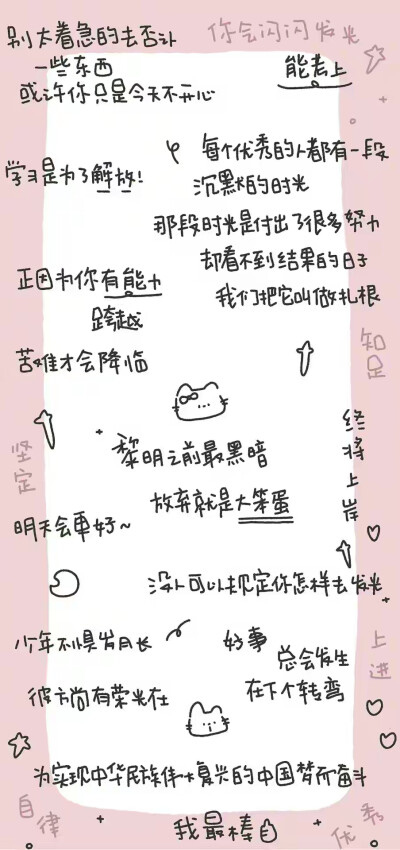 别太着急的去否认
一些东西
或许你只是今天不开心
你会闪闪发光
能考上
每个优秀的人都有一段
沉默的时光
那段时光是付出了很多努力
却看不到结果的日子
我们把它叫做扎根
学习是为了解放！
正因为你有能力
跨越
苦难才会降临
知足
坚定
黎明之前最黑暗
放弃就是大笨蛋
终将上岸
明天会更好~
没人可以规定你怎样去发光
少年不惧岁月长
彼方尚有荣光在
好事
总会发生
在下个转弯
上进
为实现中华民族伟大复兴的中国梦而奋斗
自律
我最棒
优秀